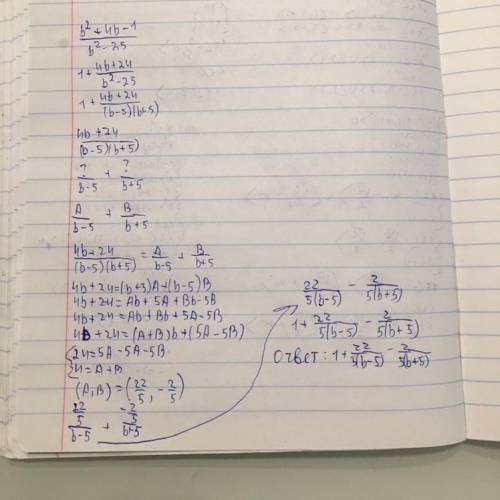 b² + 4b - 1 / b² - 25
1 + 4b + 24 / b² - 25
1 + 4b + 24 / (b-5)(b+5)
4b + 24 / (b-5)(b+5)
? / b-5 + ? / b+5
A / b-5 + B / b+5
4b + 24 / (b-5)(b+5) = A / b-5 + B / b+5
4b + 24 = (b+5)A + (b-5)B
4b + 24 = Ab + 5A + Bb - 5B
4b + 24 = Ab + Bb + 5A - 5B
4b + 24 = (A+B)b + (5A - 5B)
{ 24 = 5A - 5A - 5B
{ 4 = A + B
(A,B) = (22/5, -2/5)
22/5 / b-5 + -2/5 / b+5
22 / 5(b-5) - 2 / 5(b+5)
1 + 22 / 5(b-5) - 2 / 5(b+5)
Ответ: 1 + 22 / 5(b-5) - 2 / 5(b+5)